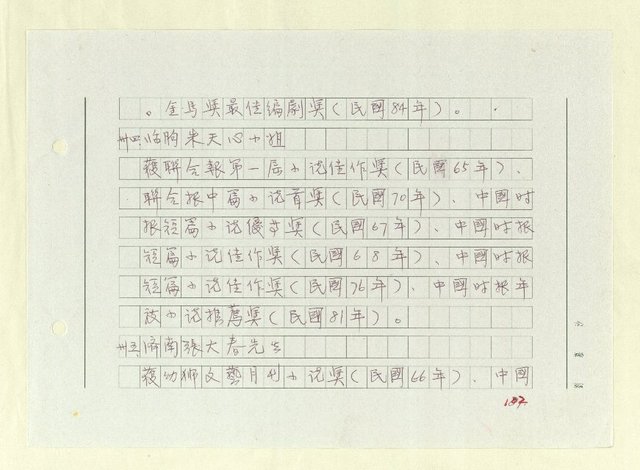 。金馬奨最佳編劇奨(民國84年)。
卅四.臨朐朱天心小姐
獲聯合報第一屆小说佳作奨(民國65年)、
聯合报中篇小说首奨(民國70年)、中國时
报短篇小说優等奨(民國67年)、中國时报
短篇小说佳作奨(民國68年)、中國时报
短篇小说佳作奨(民國76年)、中國时报年
度小说推薦奨(民國81年)。
卅五.濟南張大春先生
獲幼獅文藝月刊小说奨(民國66年)、中國
187